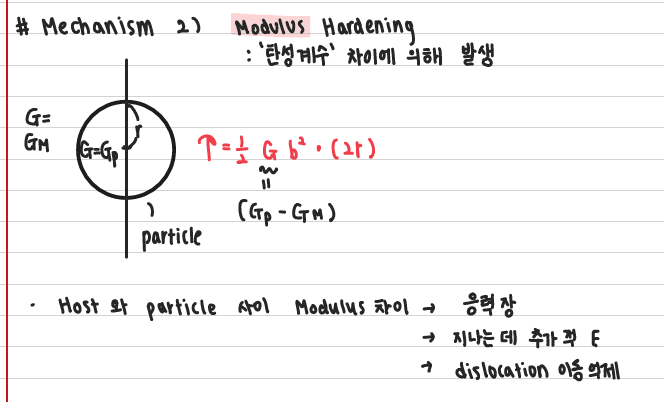 # Mechanism 2) Modulus Hardening
: '탄성계수' 차이에 의해 발생
G=
GM
G=Gp
r
↑ = 1/2 G b² · (2r)
=
(Gp - GM)
particle
· Host 와 particle 사이 Modulus 차이 → 응력장
→ 지나는데 추가적 E
→ dislocation 이동 억제